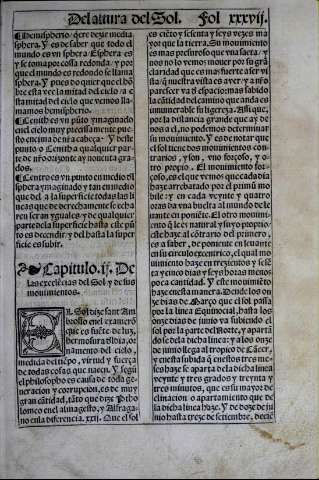 Del altura del Sol. Fol xxxvij.
Hemispherio/ q̃rer dezir media
sphera. Y es de saber que todo el
mundo es vn sphera/ Esphera es
y se toma por cosa redonda/ y por
que el mundo es redondo se llama
sphera. Y pues do quier que el hõ
bre esta ver la mitad del cielo/ a e
sta mitad del cielo que vemos lla
mamos hemispherio.
Cenith es vn pũto ymaginado
en el cielo muy precissamente pue
sto encima de nr̃a cabeça. Y deste
punto o Cenith a qualquier par
te de nr̃o orizonte ay nouenta gra
dos.
Centro es vn punto en medio d̃l
sphera ymaginado y tan en medio
que del a la superficie todas las li
neas que de derechamente se echa
ren seran yguales/ y de qualquier
parte de la superficie hasta este pũ
to es decendir. y del hasta la super
ficie es subir.
Capitulo.ij. De
las excelẽcias del Sol y de sus
mouimientos.
EL Sol dize sant Am
brosio en el examerõ
que es fuẽte de luz,
hermosura d̃l dia, or
namento del cielo,
medida del tiẽpo, virtud y fuerça
de todas cosas que nacen. Y segũ
el philosopho es causa de toda ge
neracion y corrupcion, es de muy
gran cãtidad, tãto que dize Ptho
lomeo en el almagesto, y Alfraga
no en la diferencia. xxij. Que el sol
es ciẽto y sesenta y seys vezes ma
yor que la tierra. Su mouimiento
es mas presuroso que vna saeta/ y
nos no lo vemos mouer por su grã
claridad que es mas fuerte a ser vi
sta q̃ nuestra vista es a ver/ y a nr̃o
parescer va d̃ espacio: mas sabido
la cãtidad del camino que anda es
innumerable su ligereza. Assi que,
por la distancia grande que ay de
nos a el, no podemos determinar
su mouimiento. Y es de notar que
el sol tiene dos mouimientos con
trarios, y son, vno forçoso, y o-
tro propio. El mouimiento for-
çoso, es el que vemos que cada dia
haze arrebatado por el primũ mo
bile y en cada veynte y quatro
oras da vna buelta al mundo de le
uante en poniẽte. El otro mouimi-
ẽto q̃ le es natural y suyo propio d-
ste haze al cõtrario del primero,
es a saber, de poniente en leuante
en su circulo excentrico, el qual mo
uimiento haze en trezientos y sesẽ
ta y cinco dias y seys horas menos
poca cantidad. Y este mouimiẽto
haze en esta manera. Desde los on
ze dias de Março que el sol passa
por la linea Equinocial, hasta los
onze dias de junio va subiendo el
sol por la parte del Norte, y apartã
do se de la dicha linea: y a los onze
de junio llega al tropico de Cãcer,
y en esta subida q̃ en estos tres me-
ses haze se aparta de la dicha linea
veynte y tres grados y treynta y
tres minutos, que es su mayor de
clinacion o apartamiento que de
la dicha linea haze. Y de onze de ju
nio hasta treze de setiembre, decie